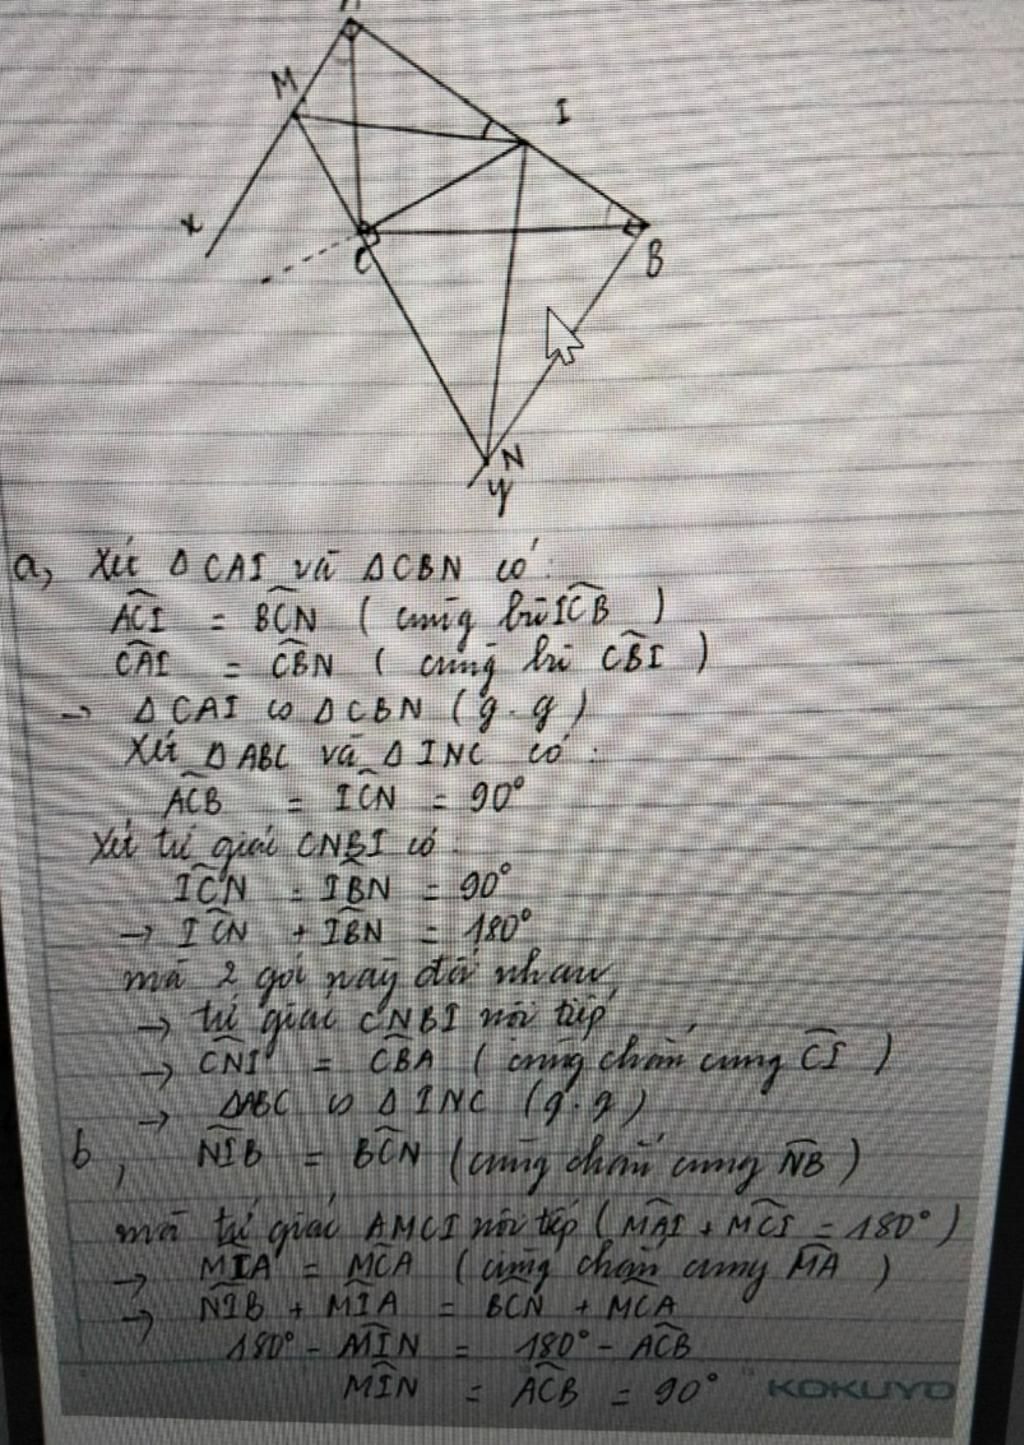 A
M
I
x
C
B
N
y
a, Xét Δ CAI và Δ CBN có:
ACI = BCN ( cùng bù ICB )
CAI = CBN ( cùng bù CBI )
→ Δ CAI ∽ Δ CBN ( g.g )
Xét Δ ABC và Δ INC có:
ACB = ICN = 90°
Xét tứ giác CNBI có
ICN = IBN = 90°
→ ICN + IBN = 180°
mà 2 góc này đối nhau
→ tứ giác CNBI nội tiếp
→ CNI = CBA ( cùng chắn cung CI )
→ ΔABC ∽ Δ INC (g.g)
b, NIB = BCN (cùng chắn cung NB )
mà tứ giác AMCI nội tiếp ( MAI + MCI = 180° )
→ MIA = MCA ( cùng chắn cung MA )
→ NIB + MIA = BCN + MCA
180° - MIN = 180° - ACB
MIN = ACB = 90° KOKUYO